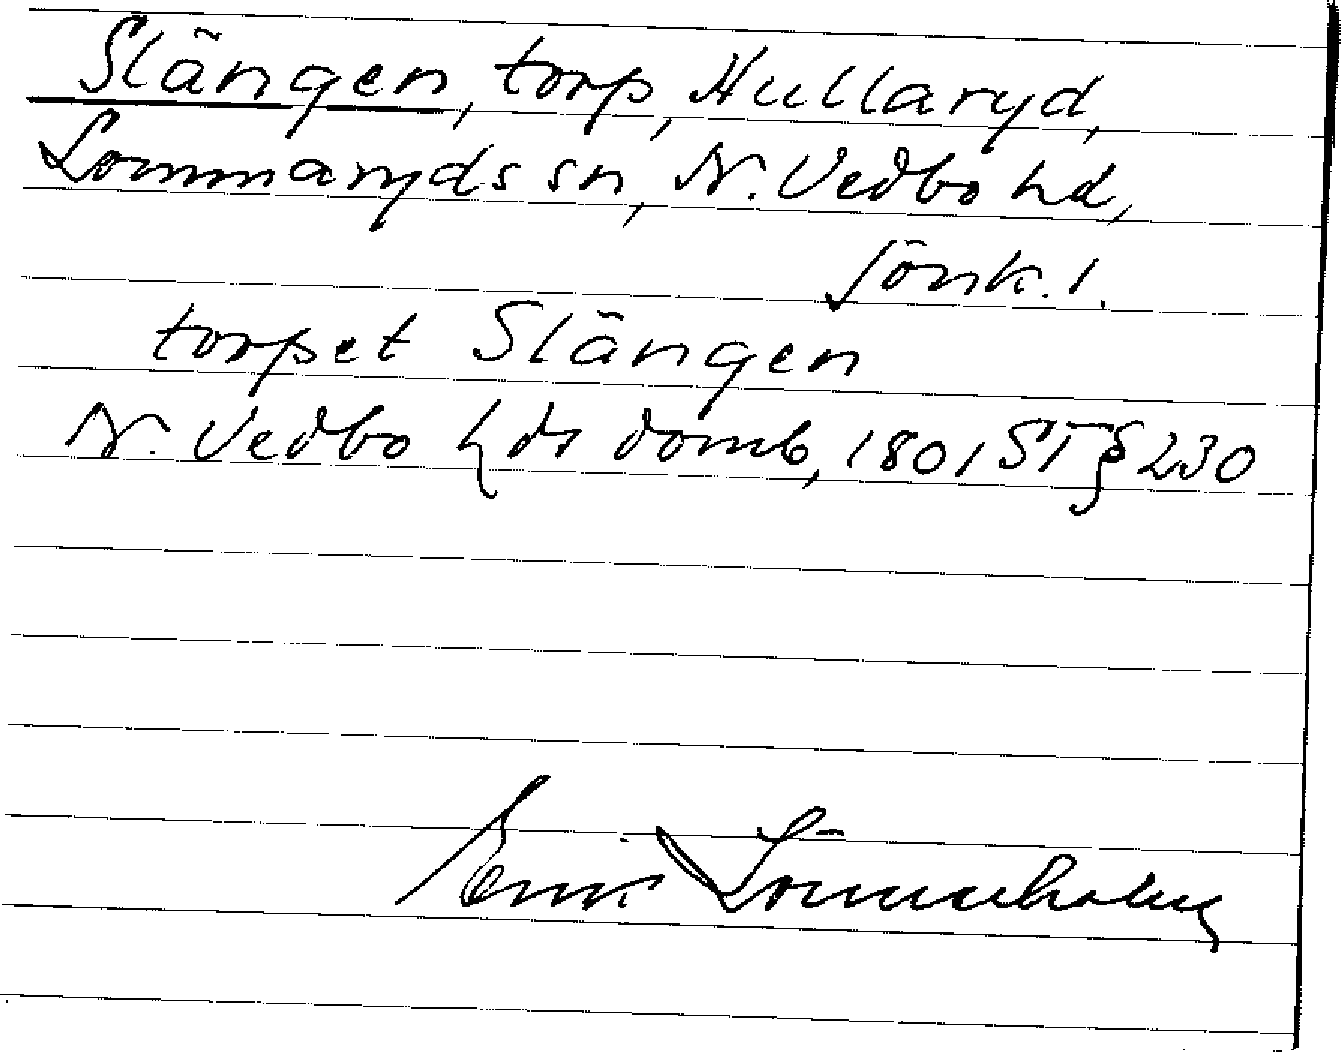 Slängen, torp, Hullaryd,
Lommaryds sn, N. Vedbo hd,
Jönk. l.
torpet Slängen
N. Vedbo hds domb, 1801 ST § 230
Erik Lönnerholm